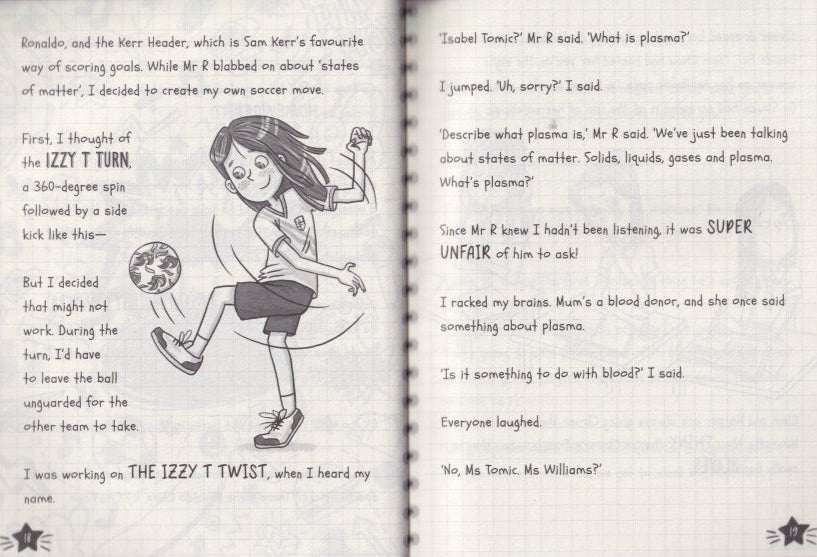 Ronaldo, and the Kerr Header, which is Sam Kerr's favourite
way of scoring goals. While Mr R blabbed on about 'states
of matter', I decided to create my own soccer move.
First, I thought of
the IZZY T TURN,
a 360-degree spin
followed by a side
kick like this—
But I decided
that might not
work. During the
turn, I'd have
to leave the ball
unguarded for the
other team to take.
I was working on THE IZZY T TWIST, when I heard my
name.
18
'Isabel Tomic?' Mr R said. 'What is plasma?'
I jumped. 'Uh, sorry?' I said.
'Describe what plasma is,' Mr R said. 'We've just been talking
about states of matter. Solids, liquids, gases and plasma.
What's plasma?'
Since Mr R knew I hadn't been listening, it was SUPER
UNFAIR of him to ask!
I racked my brains. Mum's a blood donor, and she once said
something about plasma.
'Is it something to do with blood?' I said.
Everyone laughed.
'No, Ms Tomic. Ms Williams?'
19